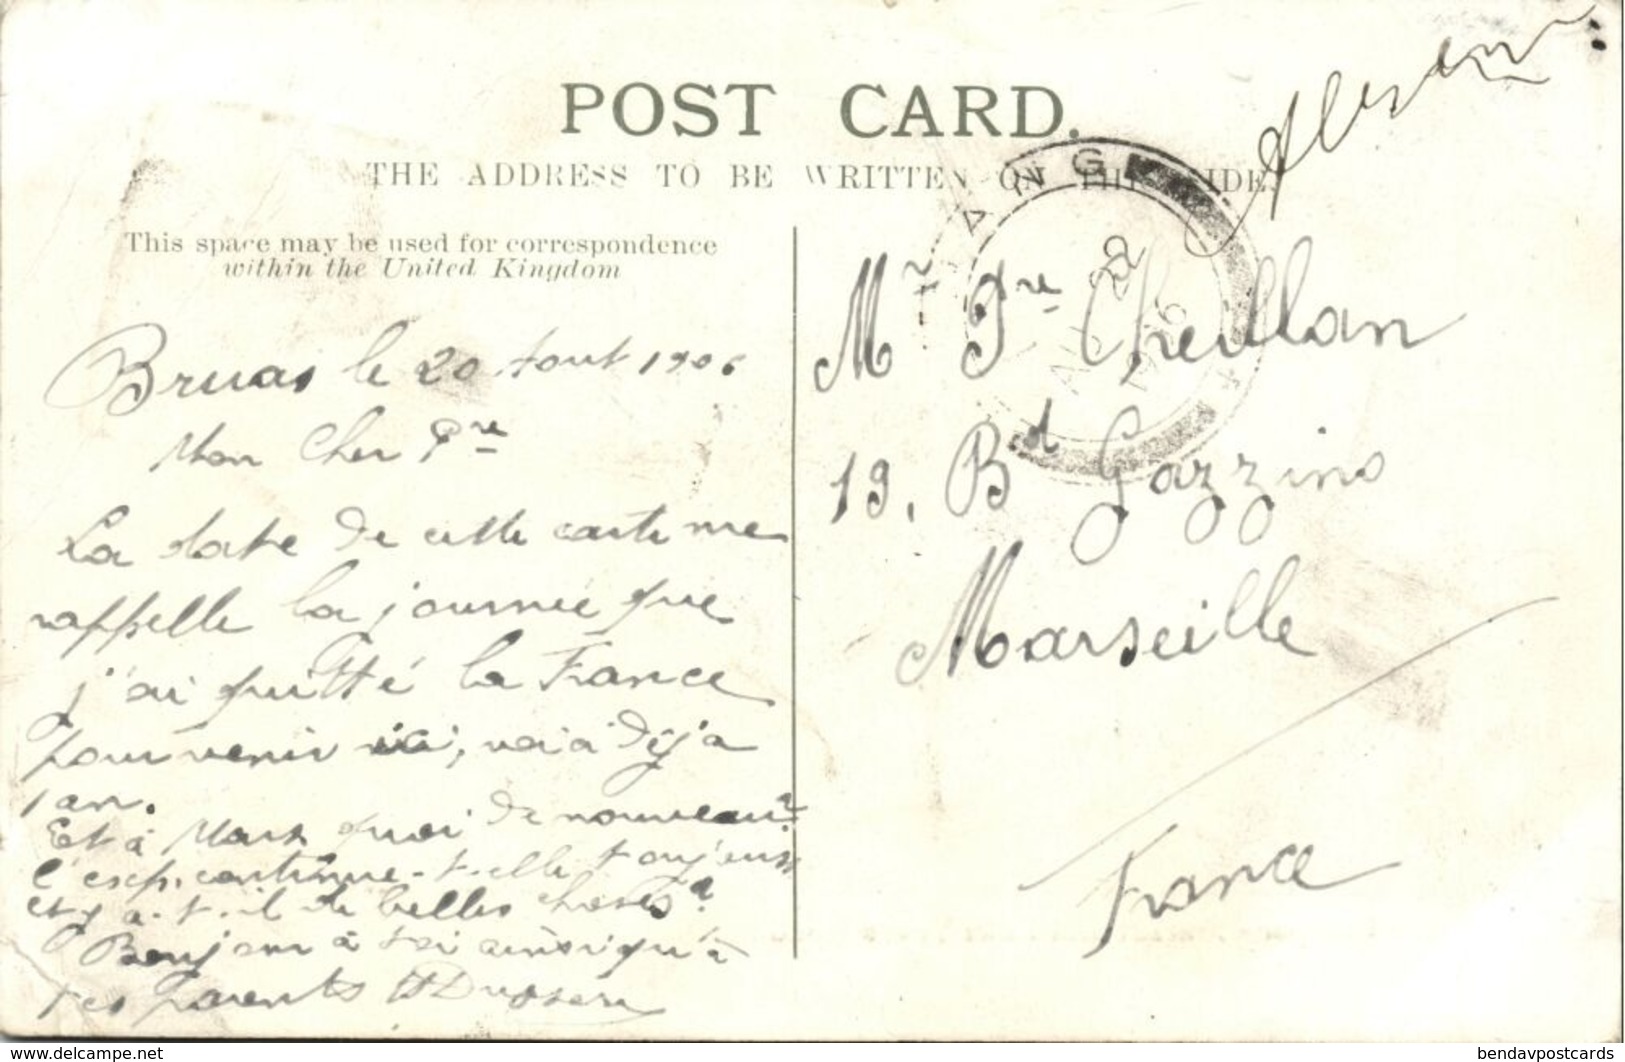 POST CARD.
THE ADDRESS TO BE WRITTEN ON THIS SIDE.
This space may be used for correspondence
within the United Kingdom
ANG
AU 22
1906
Bruas le 20 Aout 1906
Mon Cher Pre
La date de cette carte me
rappelle la journée que
j'ai quitté la France
pour venir ici, voià déja
1 an.
Et à Mars quoi de nouveau?
l'exp. continue-t-elle toujours
et y a-t-il de belles choses?
Bonjour à toi ainsi qu'à
tes parents
Mr Pre Cheillan
19, Bd Gazzino
Marseille
France
www.delcampe.net
bendavpostcards